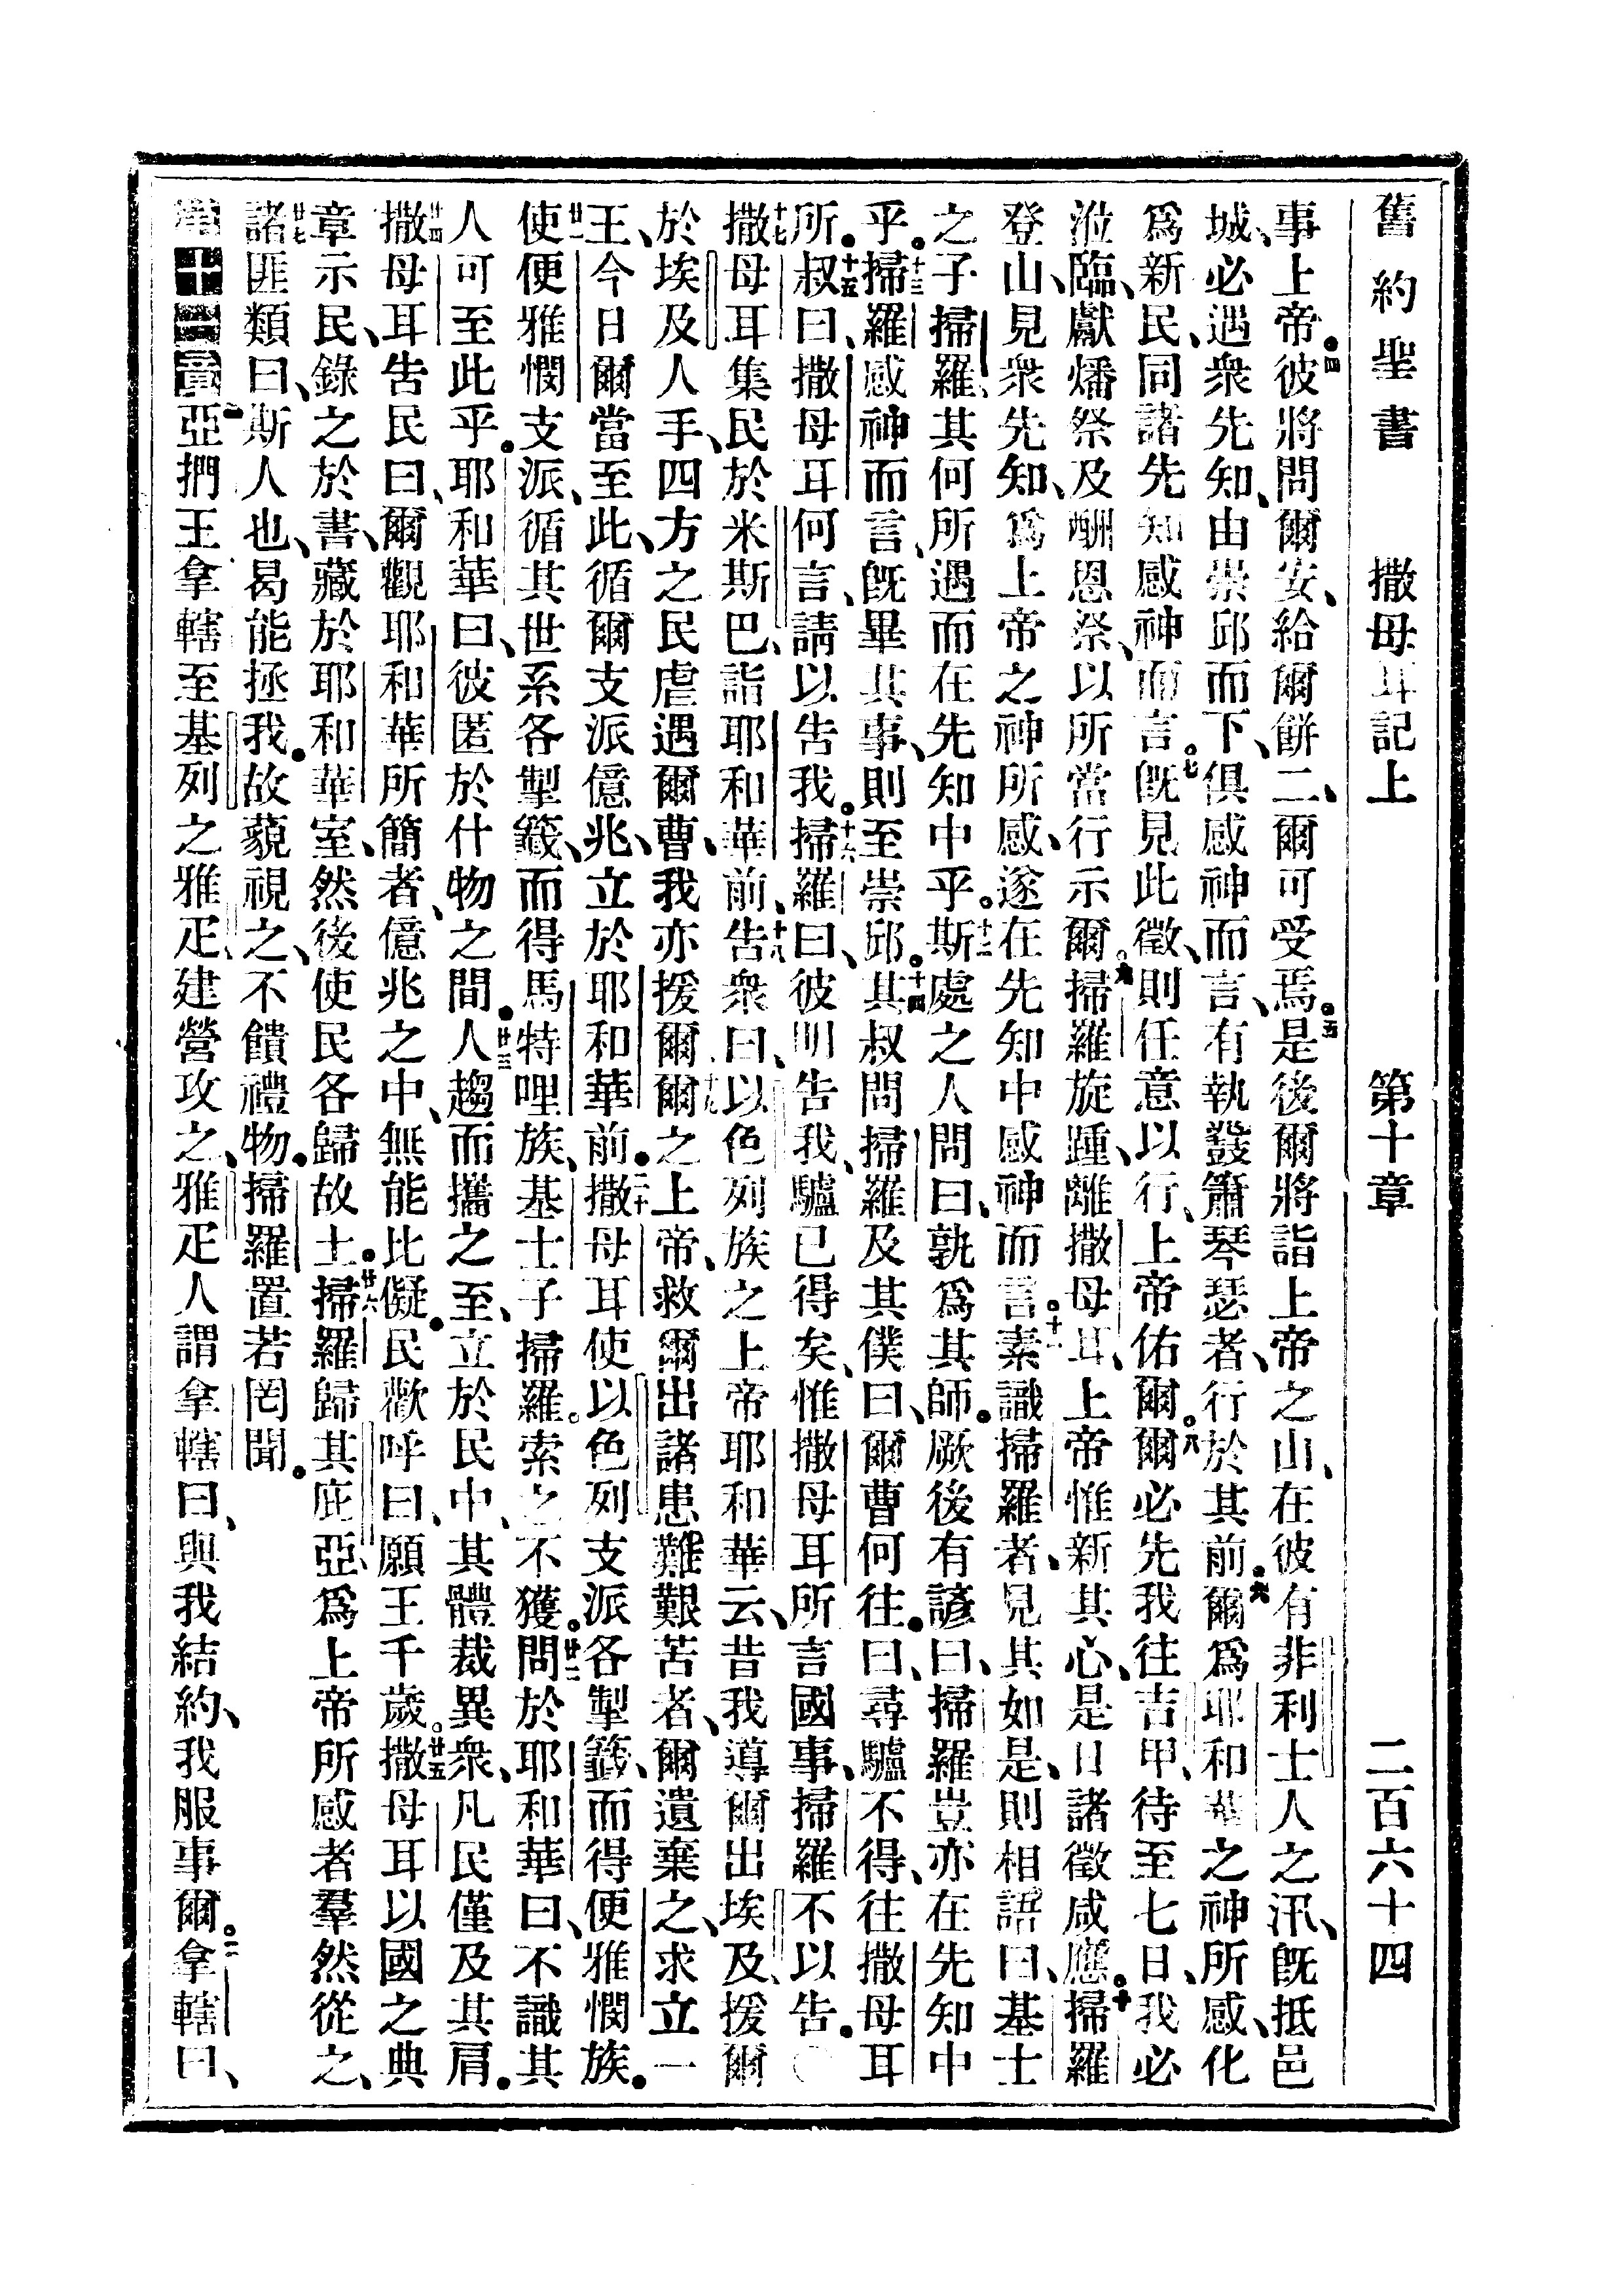 舊約聖書 撒母耳記上 第十章 二百六十四
事上帝。四彼將問爾安、給爾餅二、爾可受焉。五是後爾將詣上帝之山、在彼有非利士人之汛、旣抵邑
城、必遇衆先知、由崇邱而下、俱感神而言、有執鼗簫琴瑟者、行於其前。六爾爲耶和華之神所感、化
爲新民、同諸先知感神而言。七旣見此徵、則任意以行、上帝佑爾。八爾必先我往吉甲、待至七日、我必
涖臨、獻燔祭及酬恩祭、以所當行示爾。九掃羅旋踵、離撒母耳、上帝惟新其心、是日諸徵咸應。十掃羅
登山、見衆先知、爲上帝之神所感、遂在先知中感神而言。十一素識掃羅者、見其如是、則相語曰、基士
之子掃羅、其何所遇而在先知中乎。十二斯處之人問曰、孰爲其師。厥後有諺曰、掃羅豈亦在先知中
乎。十三掃羅感神而言、旣畢其事、則至崇邱。十四其叔問掃羅及其僕曰、爾曹何往。曰、尋驢不得、往撒母耳
所。十五叔曰、撒母耳何言、請以告我。十六掃羅曰、彼明告我、驢已得矣、惟撒母耳所言國事、掃羅不以告。○
十七撒母耳集民於米斯巴、詣耶和華前、十八告衆曰、以色列族之上帝耶和華云、昔我導爾出埃及、援爾
於埃及人手、四方之民虐遇爾曹、我亦援爾、十九爾之上帝、救爾出諸患難艱苦者、爾遺棄之、求立一
王、今日爾當至此、循爾支派億兆、立於耶和華前。二十撒母耳使以色列支派各掣籤、而得便雅憫族。
廿一使便雅憫支派、循其世系各掣籤、而得馬特哩族、基士子掃羅。索之不獲。廿二問於耶和華曰、不識其
人可至此乎。耶和華曰、彼匿於什物之間。廿三人趨而攜之至、立於民中、其體裁異衆、凡民僅及其肩。
廿四撒母耳告民曰、爾觀耶和華所簡者、億兆之中、無能比儗。民歡呼曰、願王千歲。廿五撒母耳以國之典
章示民、錄之於書、藏於耶和華室、然後使民各歸故土。廿六掃羅歸其庇亞、爲上帝所感者羣然從之、
廿七諸匪類曰、斯人也、曷能拯我。故藐視之、不饋禮物。掃羅置若罔聞。
第十一章 一亞捫王拿轄至基列之雅疋、建營攻之、雅疋人謂拿轄曰、與我結約、我服事爾。二拿轄曰、